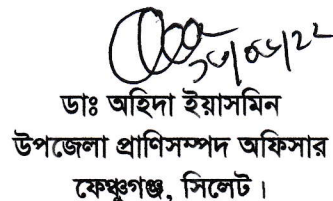 ডাঃ অহিদা ইয়াসমিন
উপজেলা প্রাণিসম্পদ অফিসার
ফেঞ্চুগঞ্জ, সিলেট।